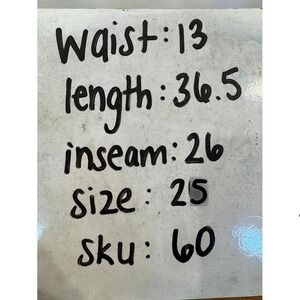 waist: 13
length: 36.5
inseam: 26
size: 25
sku: 60